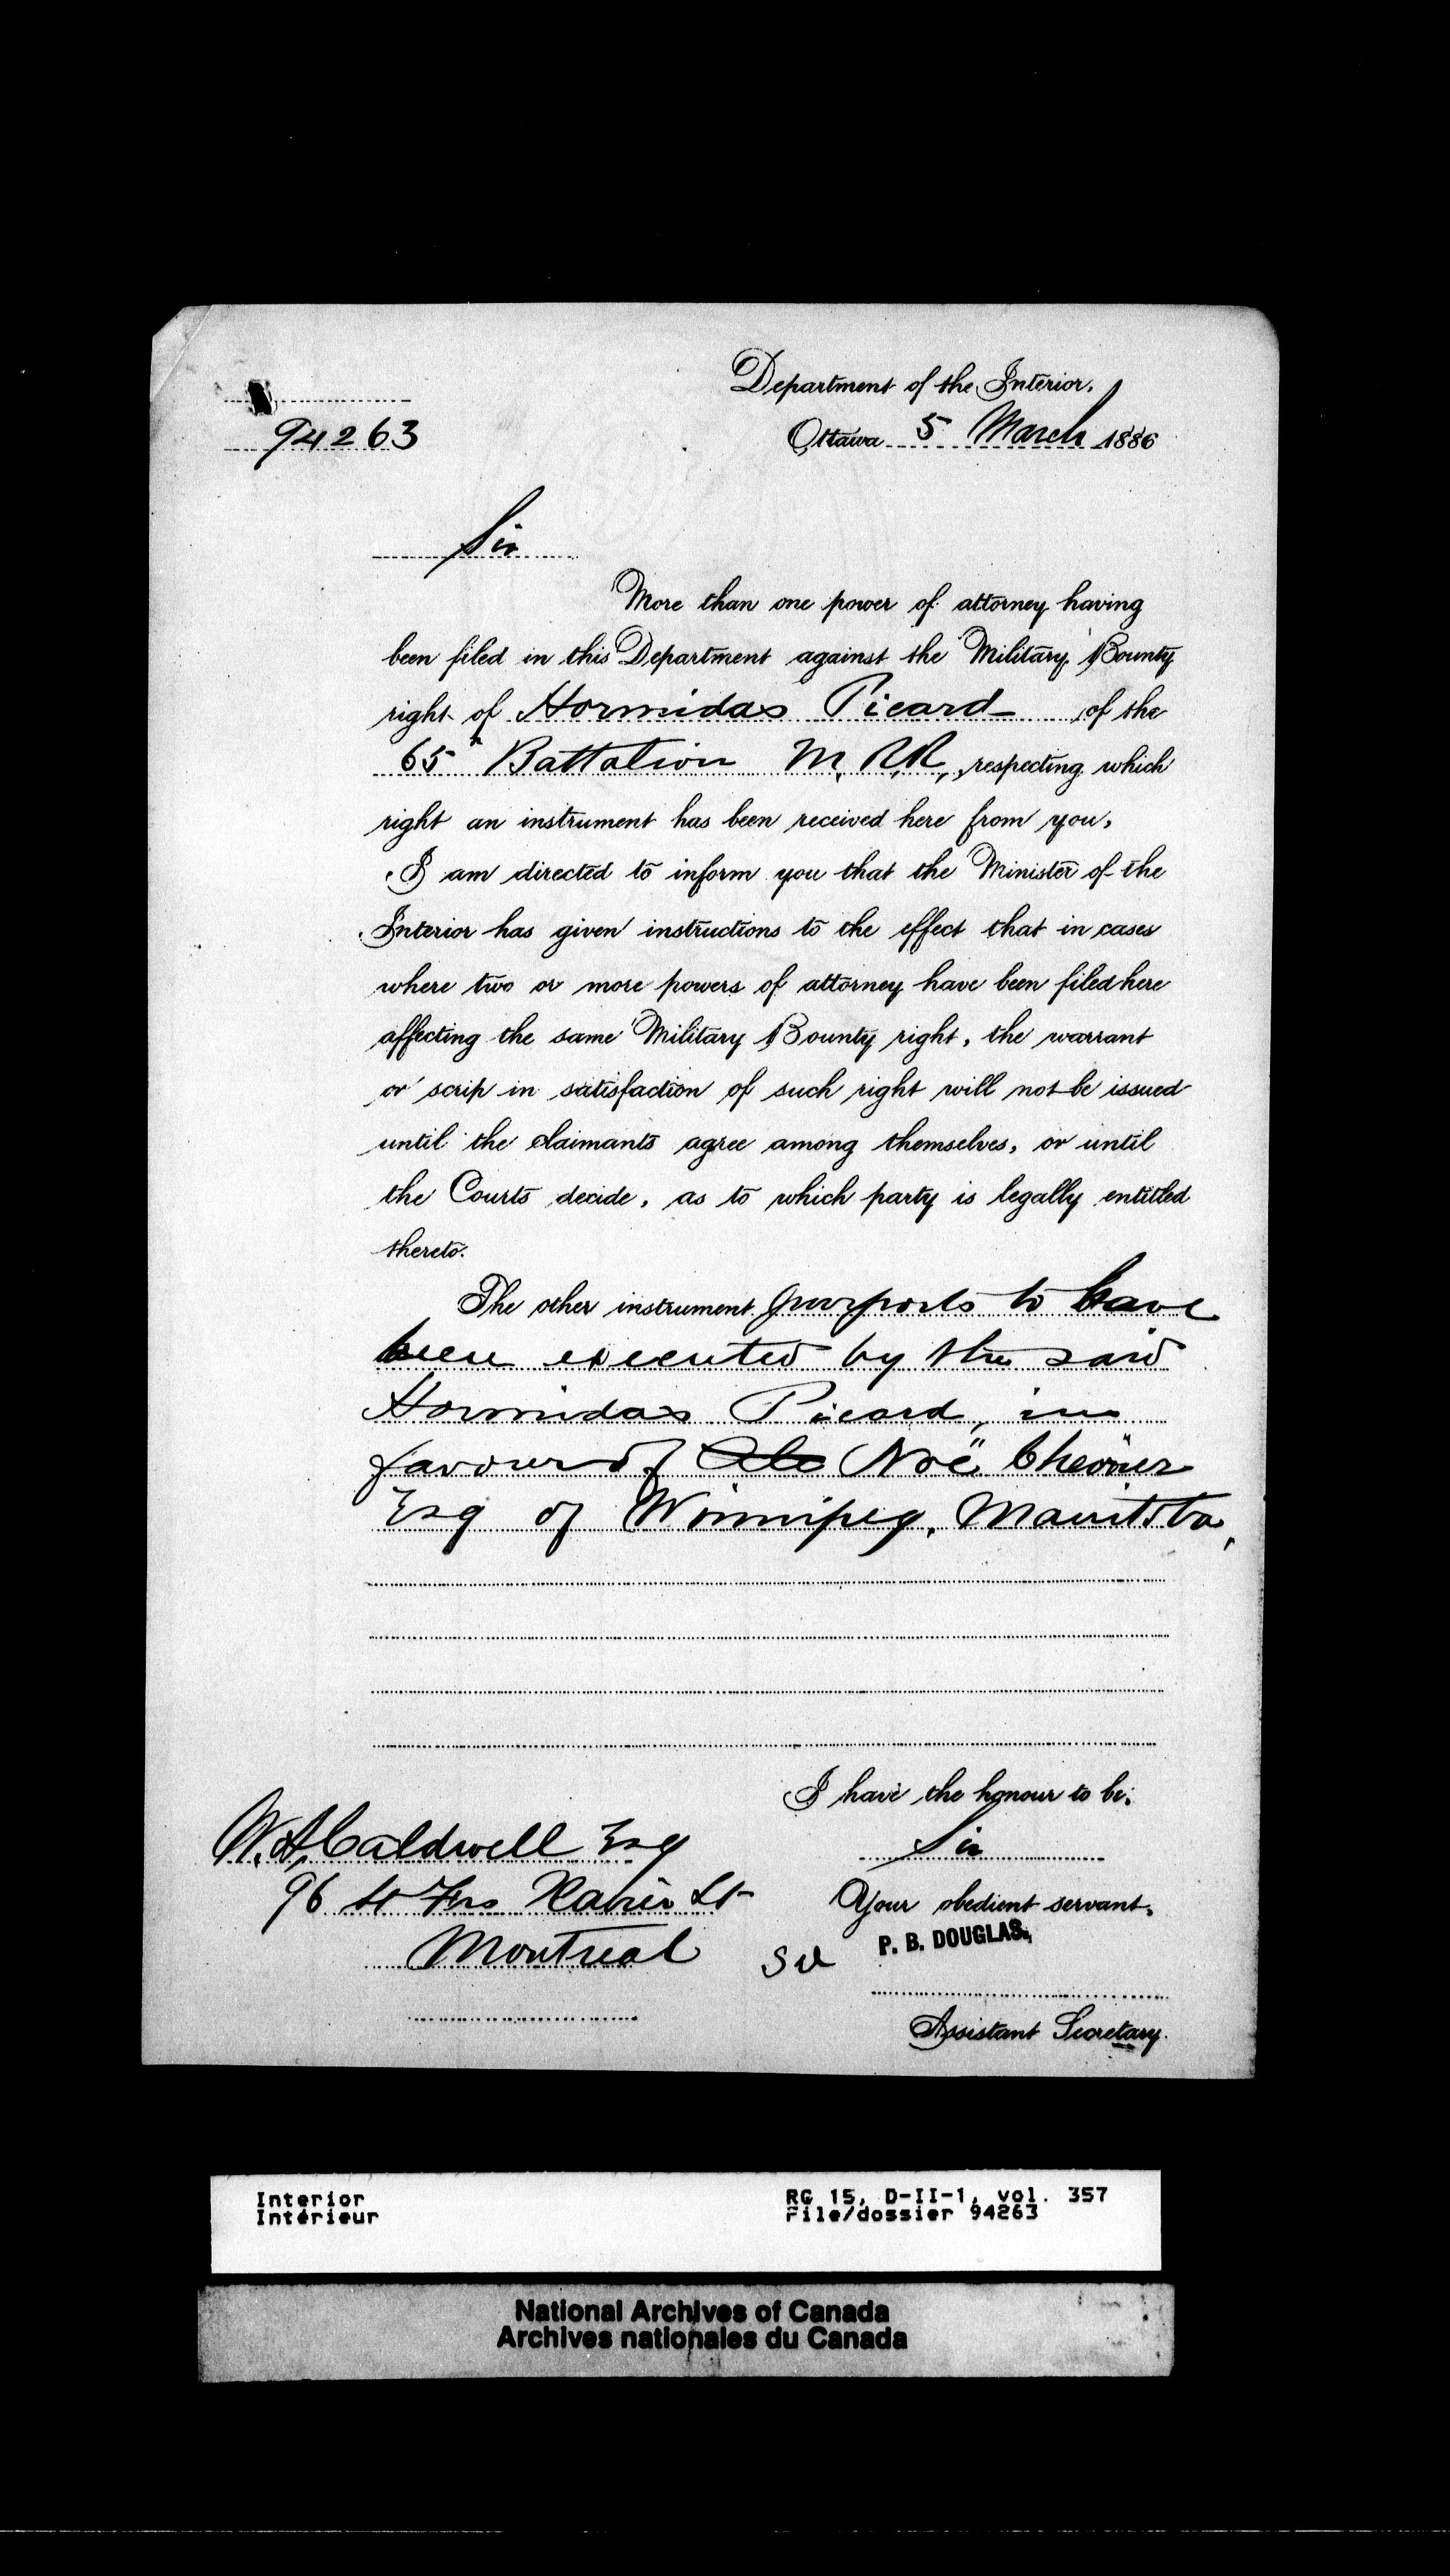 Department of the Interior,
94263
Ottawa 5 March 1886
Sir
More than one power of attorney having
been filed in this Department against the Military Bounty
right of Hormidas Picard of the
65th Battalion M. R. R., respecting which
right an instrument has been received here from you,
I am directed to inform you that the Minister of the
Interior has given instructions to the effect that in cases
where two or more powers of attorney have been filed here
affecting the same Military Bounty right, the warrant
or scrip in satisfaction of such right will not be issued
until the claimants agree among themselves, or until
the Courts decide, as to which party is legally entitled
thereto.
The other instrument purports to have
been executed by the said
Hormidas Picard, in
favour of Noë Chevrier
Esq of Winnipeg, Manitoba,
I have the honour to be,
Sir
Your obedient servant,
P. B. DOUGLAS,
Assistant Secretary.
W. A. Caldwell Esq
96 St Frs Xavier St
Montreal
Interior
Intérieur
RG 15, D-II-1, vol. 357
File/dossier 94263
National Archives of Canada
Archives nationales du Canada